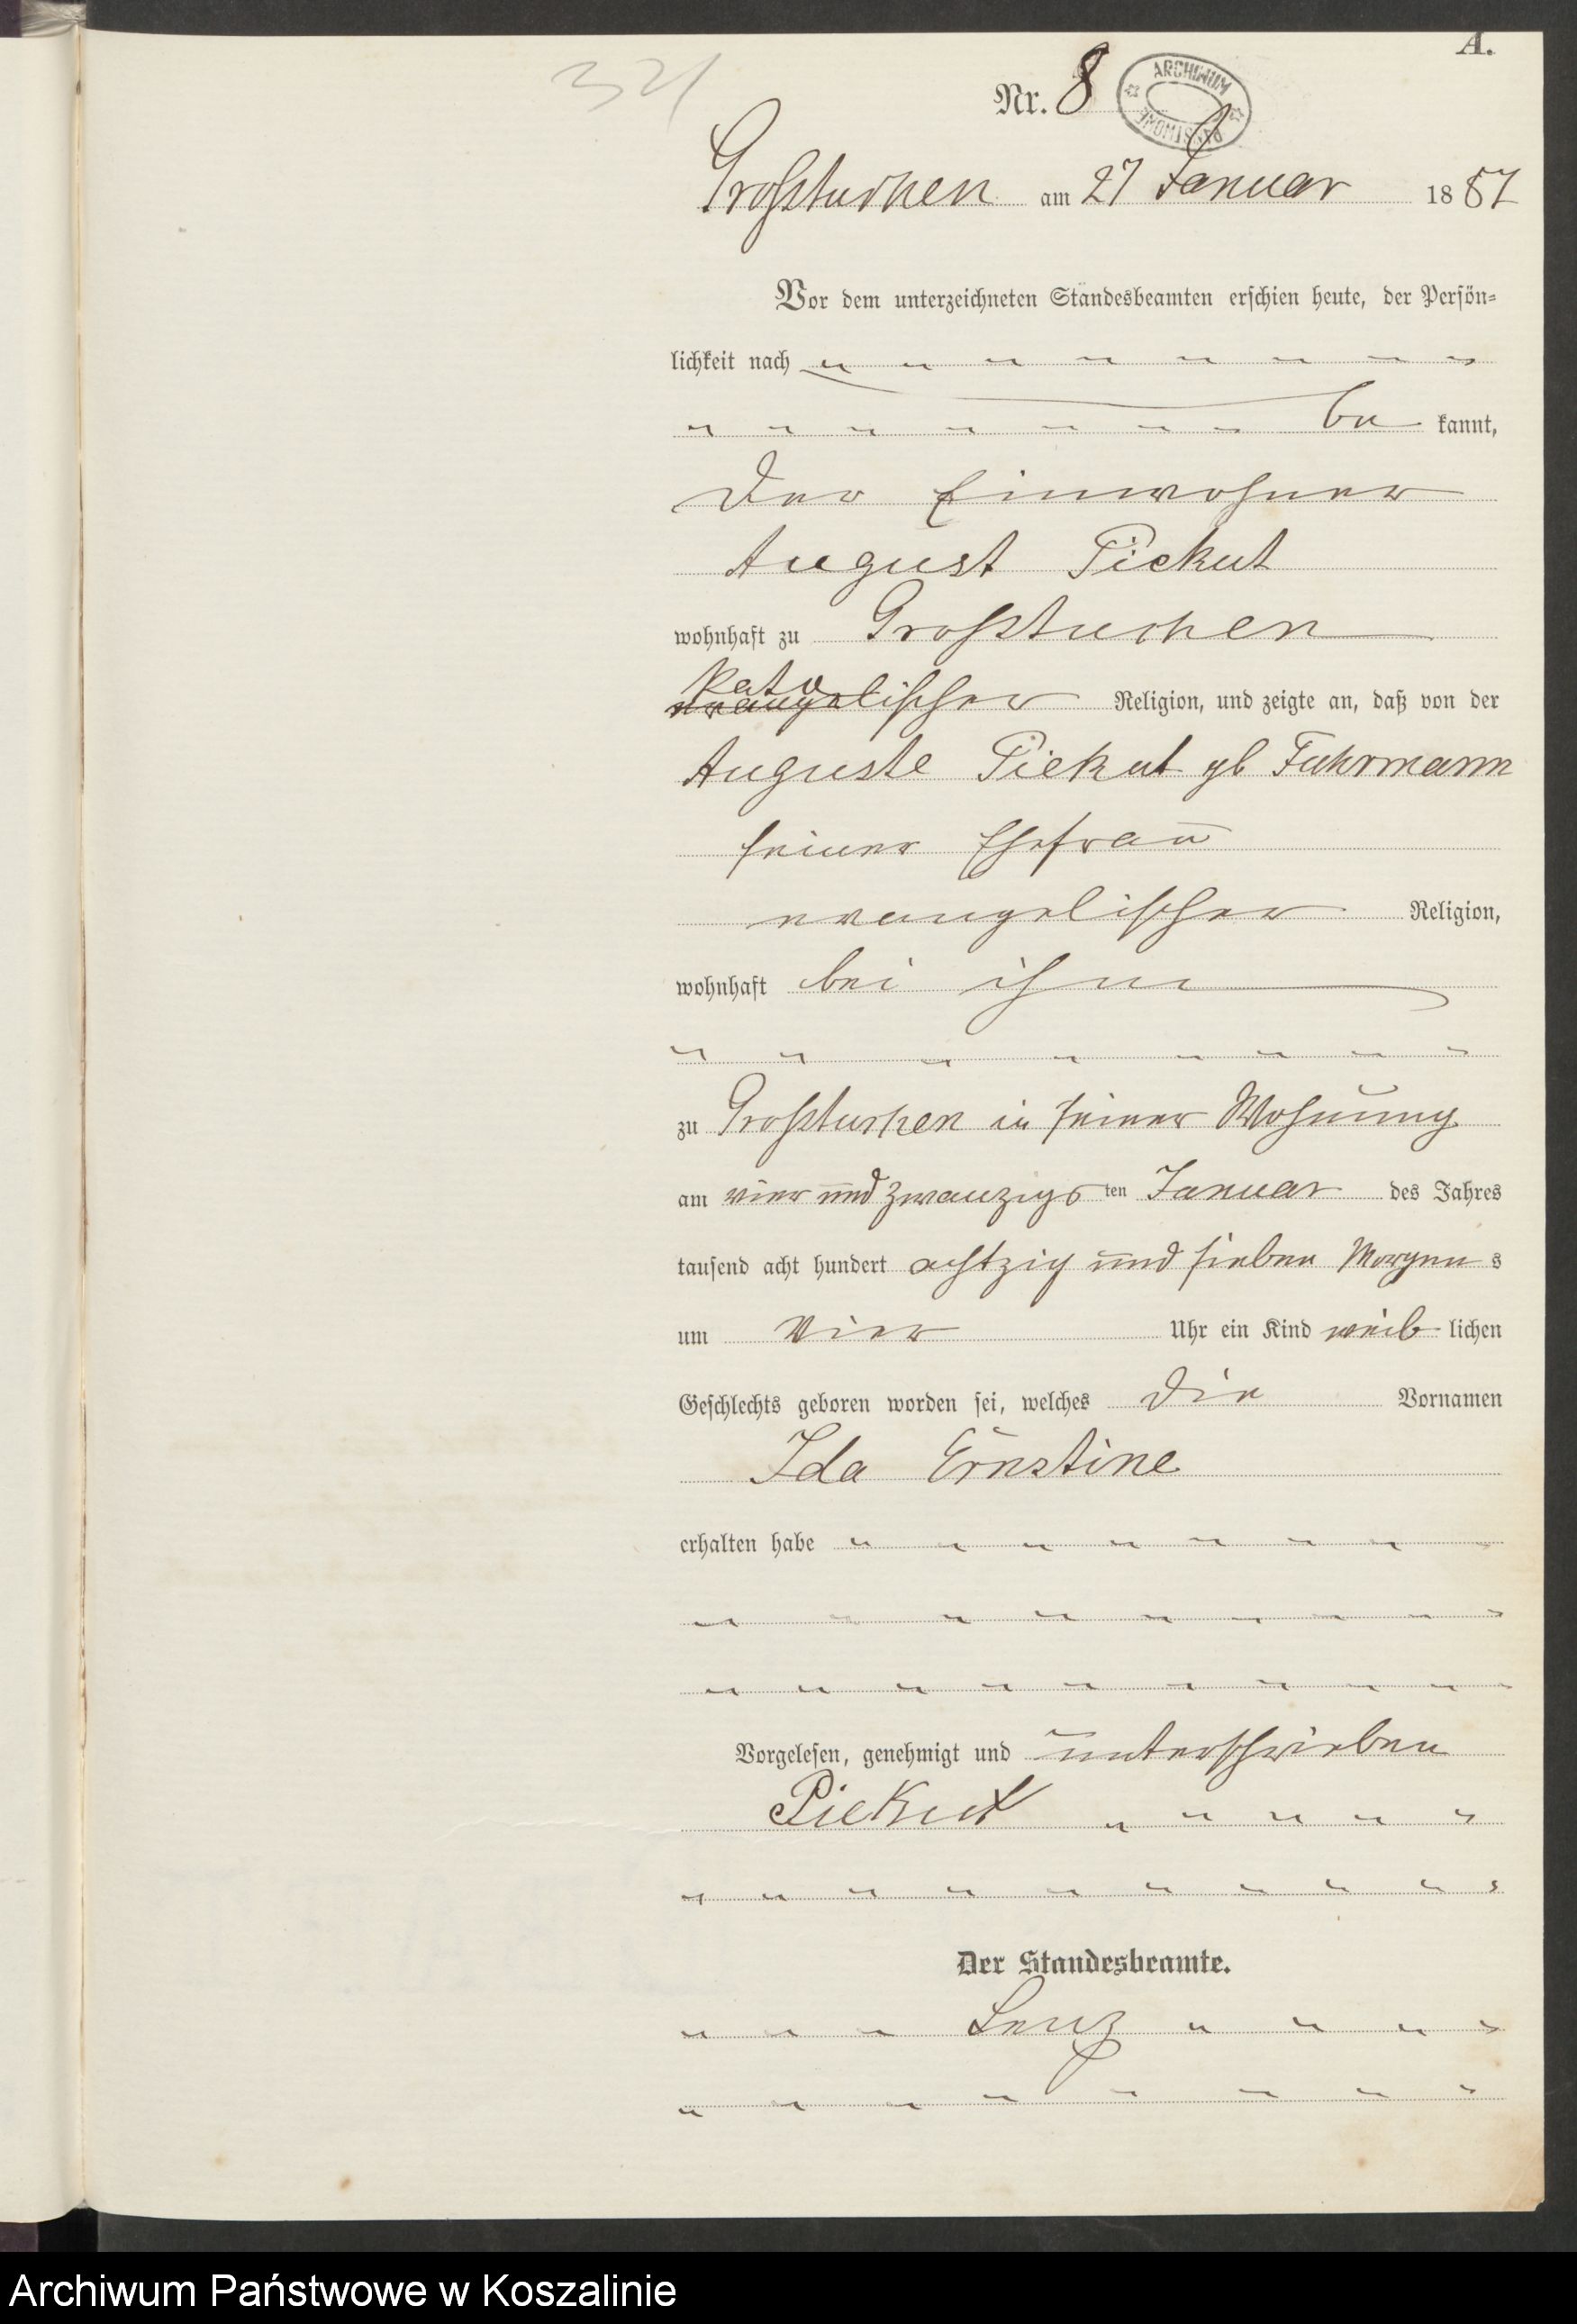 A.
321
Nr. 8
ARCHIWUM PAŃSTWOWE
Großtuchen am 27 Januar 1887
Vor dem unterzeichneten Standesbeamten erschien heute, der Persön-
lichkeit nach
be kannt,
Der Einwohner
August Piekut
wohnhaft zu Großtuchen
kato
evangelischer Religion, und zeigte an, daß von der
Auguste Piekut gb Fuhrmann
seiner Ehefrau
evangelischer Religion,
wohnhaft bei ihm
zu Großtuchen in seiner Wohnung
am vier und zwanzigs ten Januar des Jahres
tausend acht hundert achtzig und sieben Morgen s
um Vier Uhr ein Kind weib lichen
Geschlechts geboren worden sei, welches die Vornamen
Ida Ernstine
erhalten habe
Vorgelesen, genehmigt und unterschrieben
Piekut
Der Standesbeamte.
Lenz
Archiwum Państwowe w Koszalinie